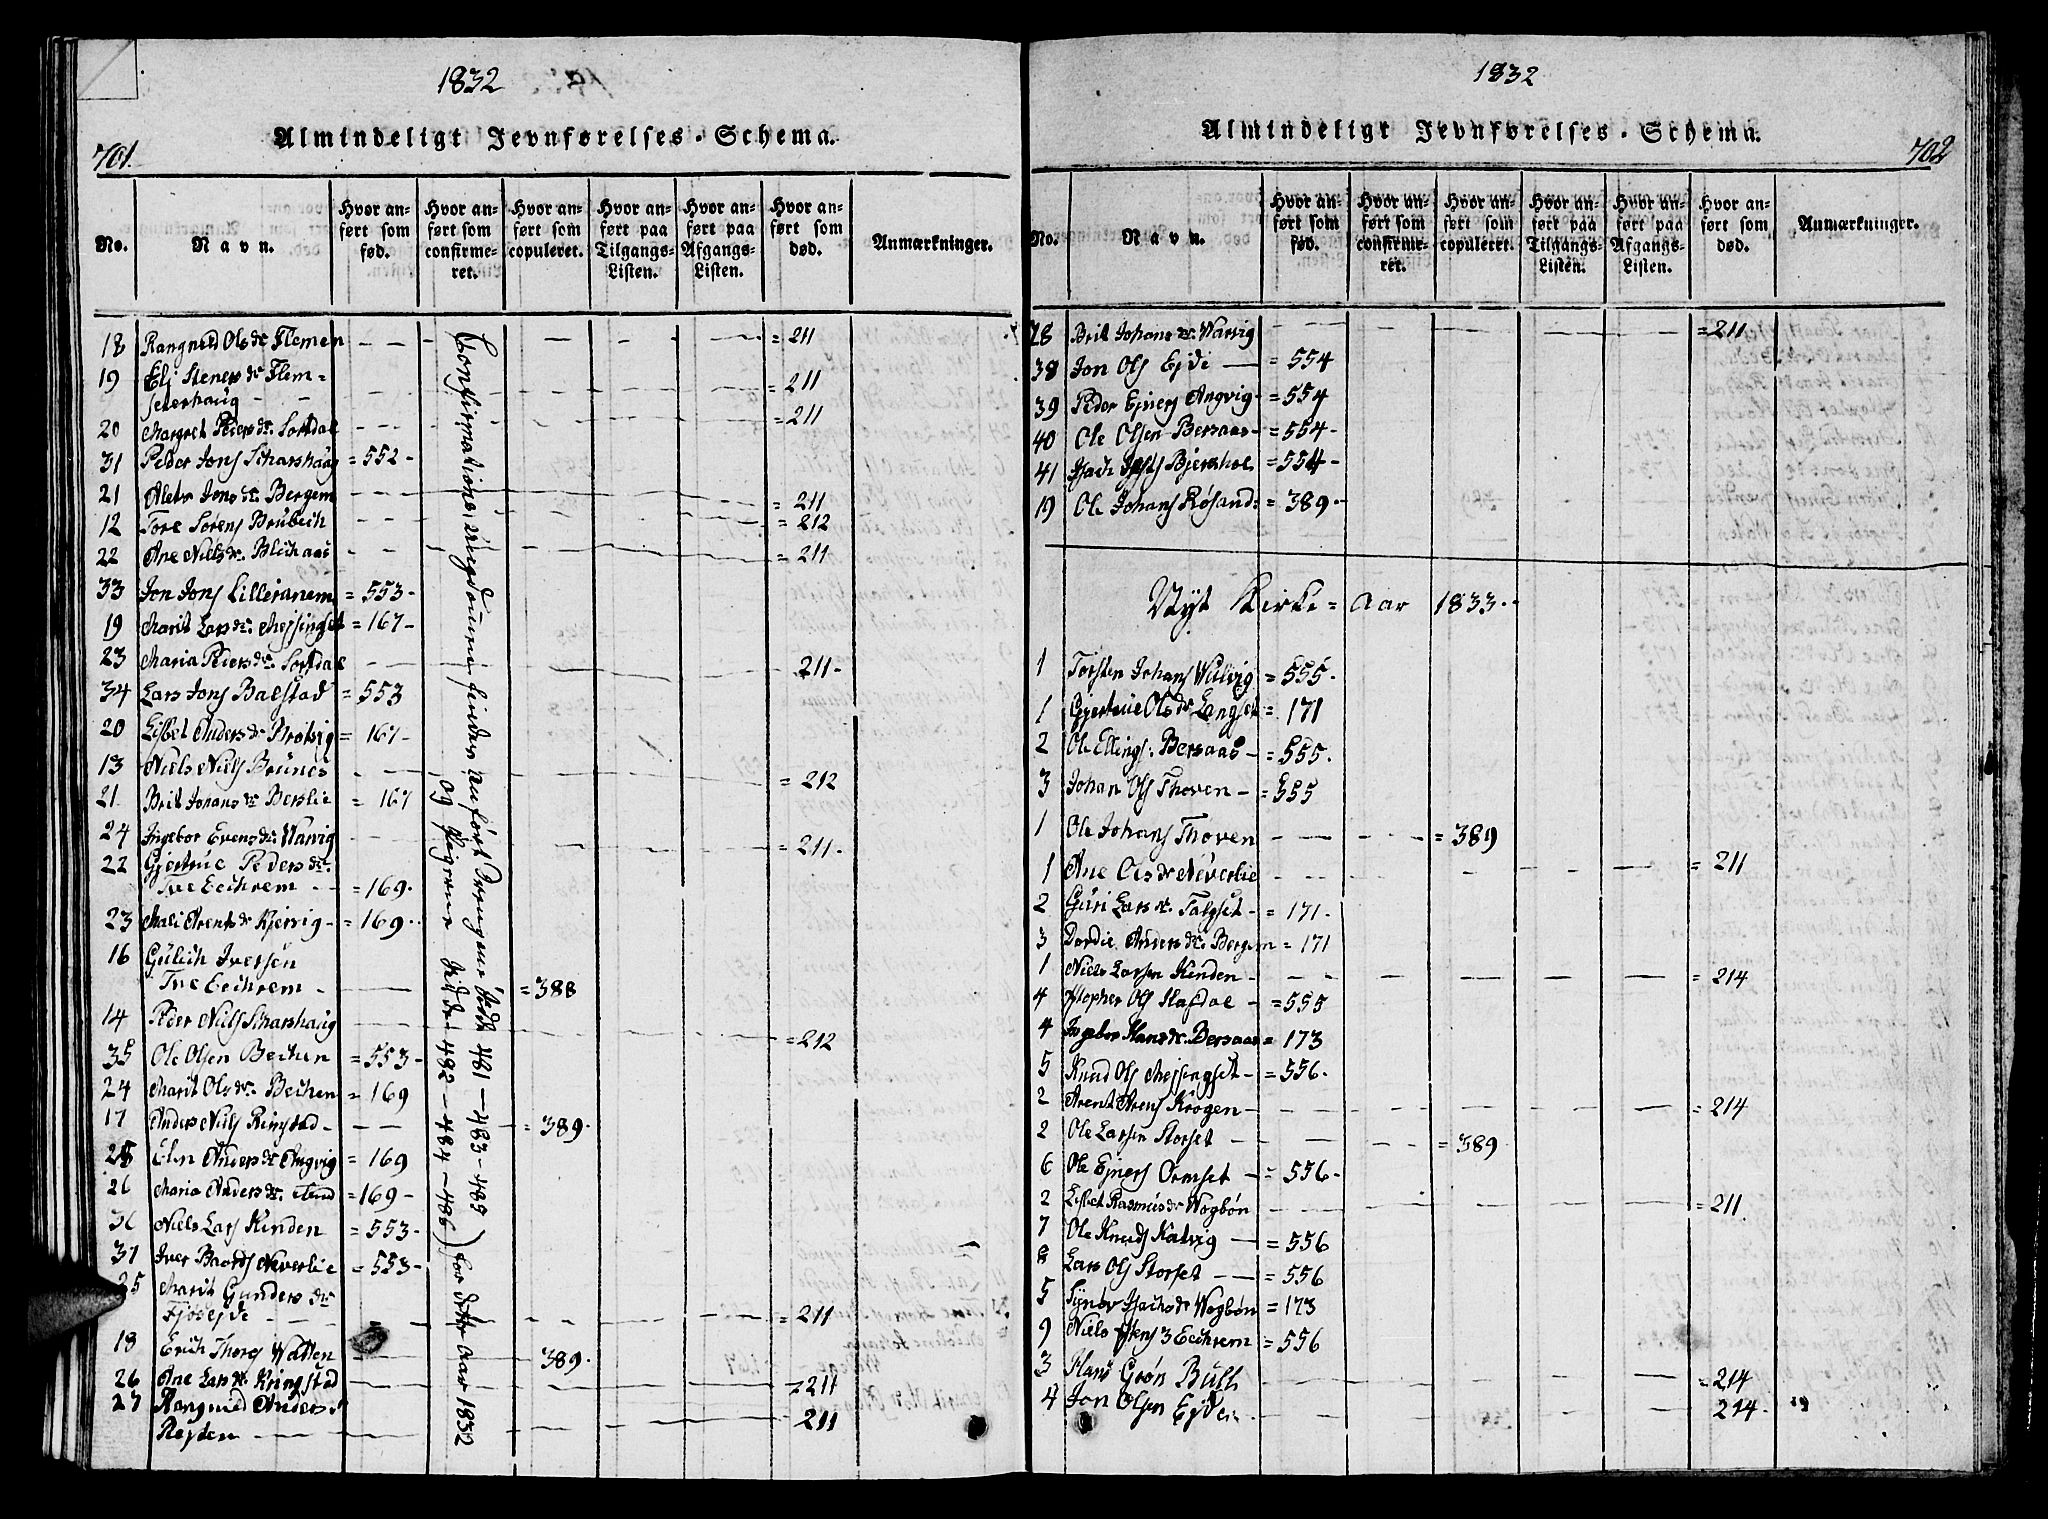 1832
Almindeligt Jevnførelses-Schema.
701.
No.
Navn.
Hvor anført som fød.
Hvor anført som confirmeret.
Hvor anført som copuleret.
Hvor anført paa Tilgangs-Listen.
Hvor anført paa Afgangs-Listen.
Hvor anført som død.
Anmærkninger.
18 Rangnild Olsdr Flemen = 211
19 Elj Steners dr Flem=
seterhaug = 211
20 Margret Peders dr. Sordal = 211
31 Peder Jons Scharshaug = 552 -
21 Aleth Jons dr. Bergem = 211
12 Tore Sørens Brubech = 212
22 Ane Niels dr. Blichaas = 211
33 Jon Jons Lilleranem = 553 -
19 Marit Lars dr. Messingset = 167 -
23 Maria Peders dr. Sordal 211 -
34 Lars Jons Balstad = 553
20 Lisbet Anders dr Protvig = 167 -
13 Niels Niels Brunes = 212
21 Brit Johans dr Berslie = 167
24 Ingebor Evens dr. Warvig = 211 -
22 Gjertrue Peders dr.
Tve Eechrem = 169.
23 Mali Arents dr Kjersvig - = 169.
16 Gulich Iversen
Tve Eechrem - = 388
14 Peder Niels Scharshaug = 212
35 Ole Olsen Bechen = 553 -
24 Marit Ols dr. Bechen = 169
17 Anders Niels Ringstad - = 389.
25 Elen Anders dr Angvig = 169
26 Maria Anders dr. = 169 -
36 Niels Lars Kinden = 553.
37 Iver Baards Neverlie = 553 -
25 Marit Gunders dr
Fjoseide = 211
18 Erich Thores Watten 389.
26 Ane Lars dr. Kringstad = 211
27 Rangnild Anders dr
Rejten 211
Confirmationen anført Drengene Side 481 - 483 - 485
og Pigerne Side 482 - 484 - 486) for dette Aar 1832
1832
Almindeligt Jevnførelses-Schema.
702
No.
Navn.
Hvor anført som fød.
Hvor anført som confirmeret.
Hvor anført som copuleret.
Hvor anført paa Tilgangs-Listen.
Hvor anført paa Afgangs-Listen.
Hvor anført som død.
Anmærkninger.
28 Brit Johans dr. Warvig = 211
38 Jon Ols Ejde = 554
39 Peder Ejners Angvig = 554
40 Ole Olsen Bersaas = 554 -
41 Isach Bjerkhol = 554 -
19 Ole Johans Røsand = 389 -
Nyt Kirke = Aar 1833.
1 Torsten Johans Wullvig = 555.
1 Gjertrue Ols dr Engset = 171
2 Ole Ellings. Bersaas - = 555.
3 Johan Ols Thoven - = 555
1 Ole Johans Thoven = 389
1 Ane Ols dr Neverlie = 211
2 Guri Lars dr. Talgset - = 171.
3 Dordie Anders dr. Bergem = 171
1 Niels Larsen Kinden - = 214
4 Ols Slatdal = 555
4 Ingebor Hans dr. Bersaas = 173
5 Knud Ols Messingset - = 556.
2 Arent Arens Krogen = 214
2 Ole Larsen Storset = 389
6 Ole Ejners Ormset = 556 -
2 Lisbet Rasmus dr Wogbøn = 211
7 Ole Knuds Kalvig = 556
8 Lars Ols Storset = 556
5 Synøv Isachs dr Wogbøn = 173
9 Niels Eechrem = 556
3 Hans Grøn Bull = 214
4 Jon Olsen Ejde 214 -